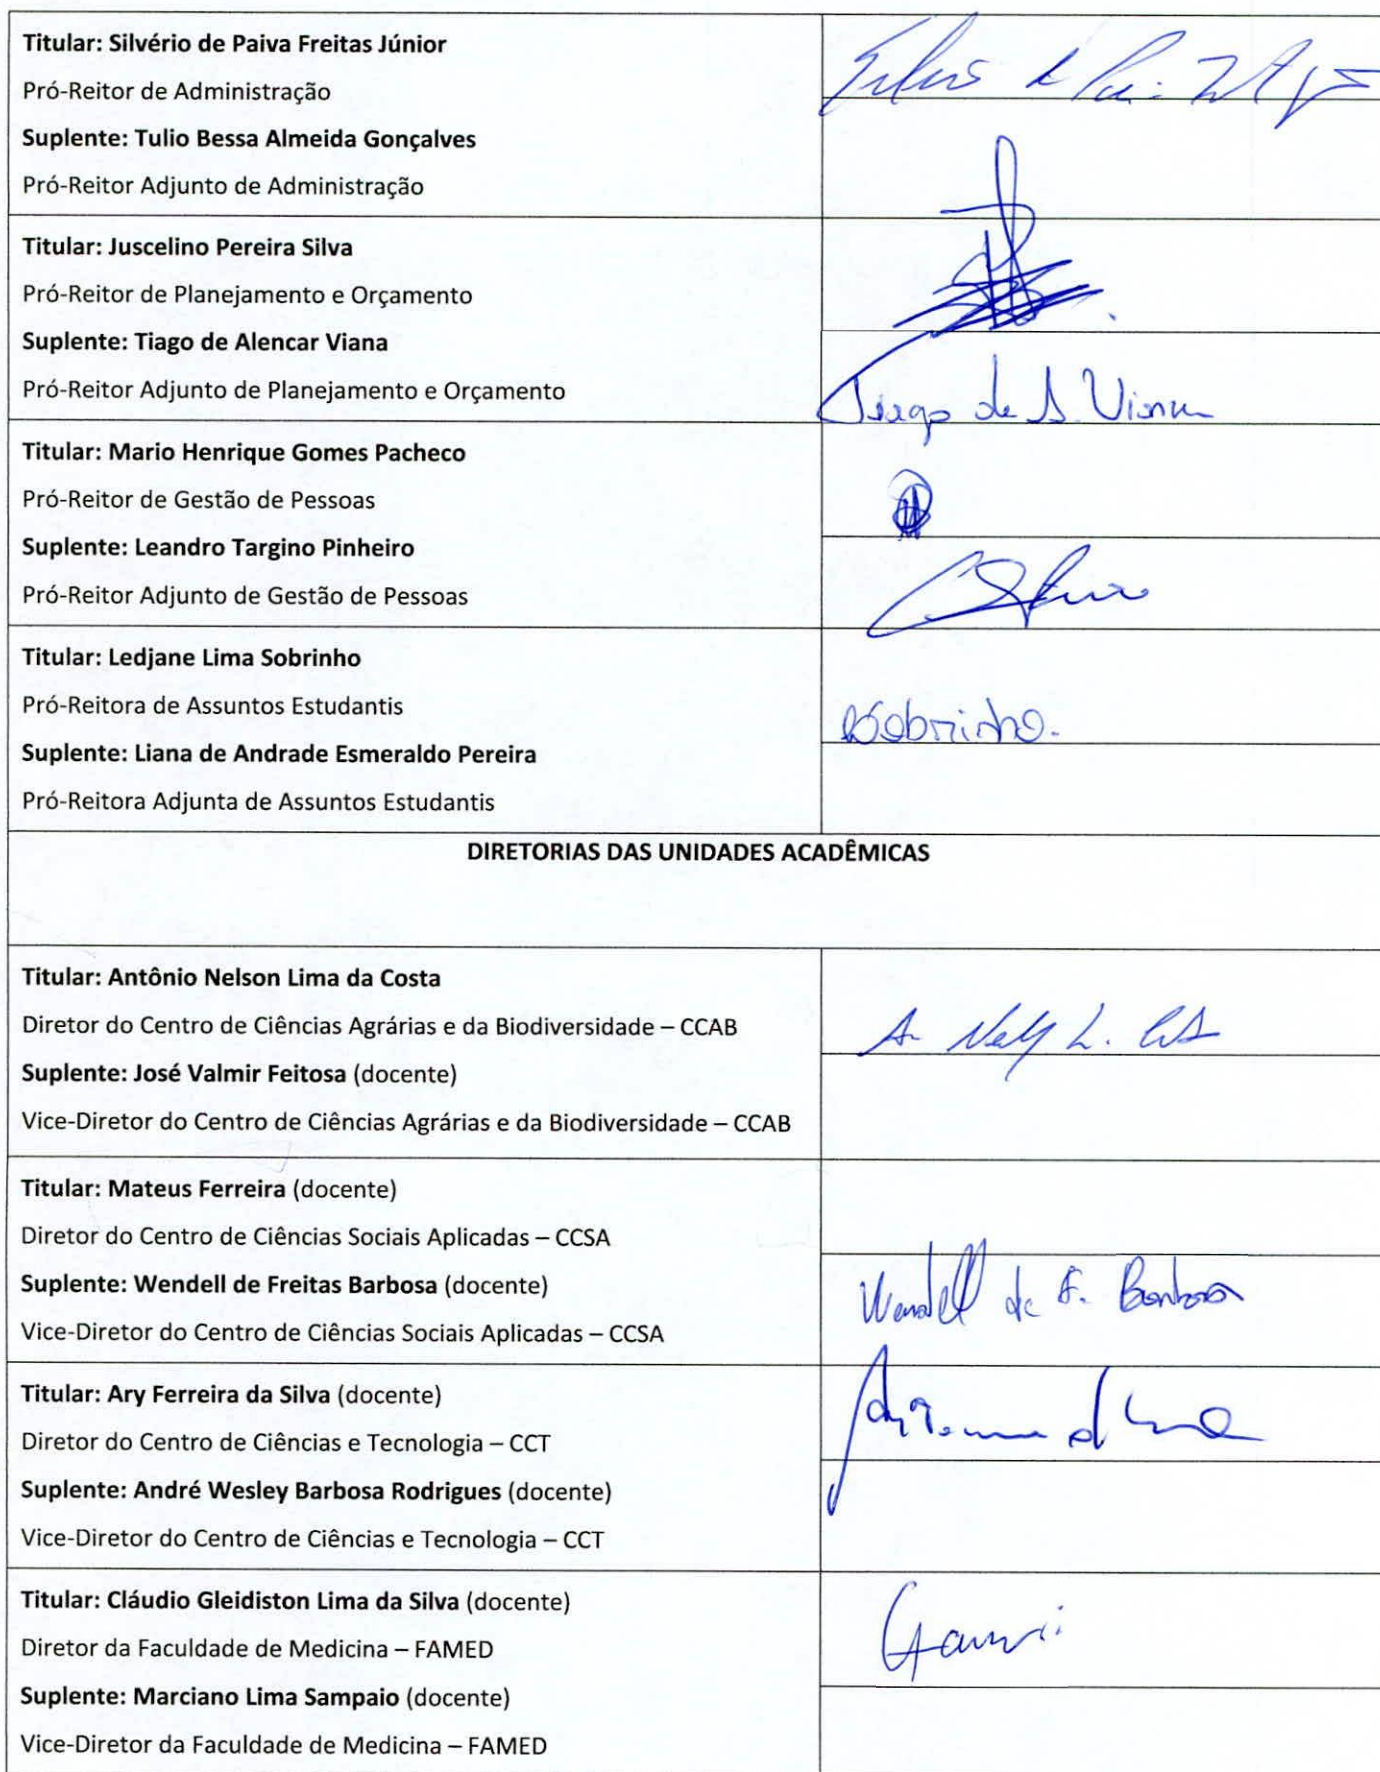 Titular: Silvério de Paiva Freitas Júnior
Pró-Reitor de Administração
Suplente: Tulio Bessa Almeida Gonçalves
Pró-Reitor Adjunto de Administração
Titular: Juscelino Pereira Silva
Pró-Reitor de Planejamento e Orçamento
Suplente: Tiago de Alencar Viana
Pró-Reitor Adjunto de Planejamento e Orçamento
Tiago de A. Viana
Titular: Mario Henrique Gomes Pacheco
Pró-Reitor de Gestão de Pessoas
Suplente: Leandro Targino Pinheiro
Pró-Reitor Adjunto de Gestão de Pessoas
Titular: Ledjane Lima Sobrinho
Pró-Reitora de Assuntos Estudantis
Sobrinho.
Suplente: Liana de Andrade Esmeraldo Pereira
Pró-Reitora Adjunta de Assuntos Estudantis
DIRETORIAS DAS UNIDADES ACADÊMICAS
Titular: Antônio Nelson Lima da Costa
Diretor do Centro de Ciências Agrárias e da Biodiversidade – CCAB
Suplente: José Valmir Feitosa (docente)
Vice-Diretor do Centro de Ciências Agrárias e da Biodiversidade – CCAB
Titular: Mateus Ferreira (docente)
Diretor do Centro de Ciências Sociais Aplicadas – CCSA
Suplente: Wendell de Freitas Barbosa (docente)
Wendell de F. Barbosa
Vice-Diretor do Centro de Ciências Sociais Aplicadas – CCSA
Titular: Ary Ferreira da Silva (docente)
Diretor do Centro de Ciências e Tecnologia – CCT
Suplente: André Wesley Barbosa Rodrigues (docente)
Vice-Diretor do Centro de Ciências e Tecnologia – CCT
Titular: Cláudio Gleidiston Lima da Silva (docente)
Diretor da Faculdade de Medicina – FAMED
Suplente: Marciano Lima Sampaio (docente)
Vice-Diretor da Faculdade de Medicina – FAMED